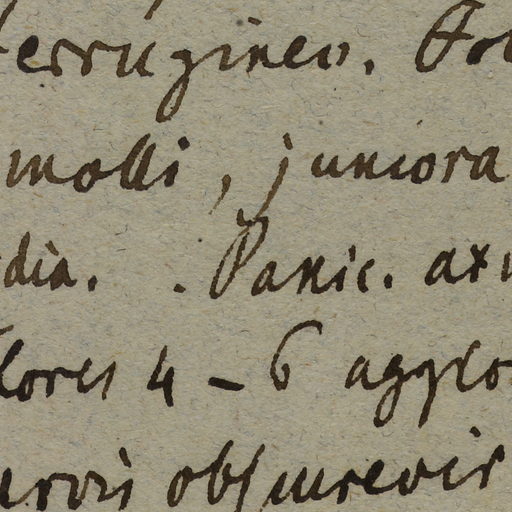 ferrugineo. Fol
molli, juniora
dia. . Panic. ax
flores 4 - 6 agglo
arvis obscurevir